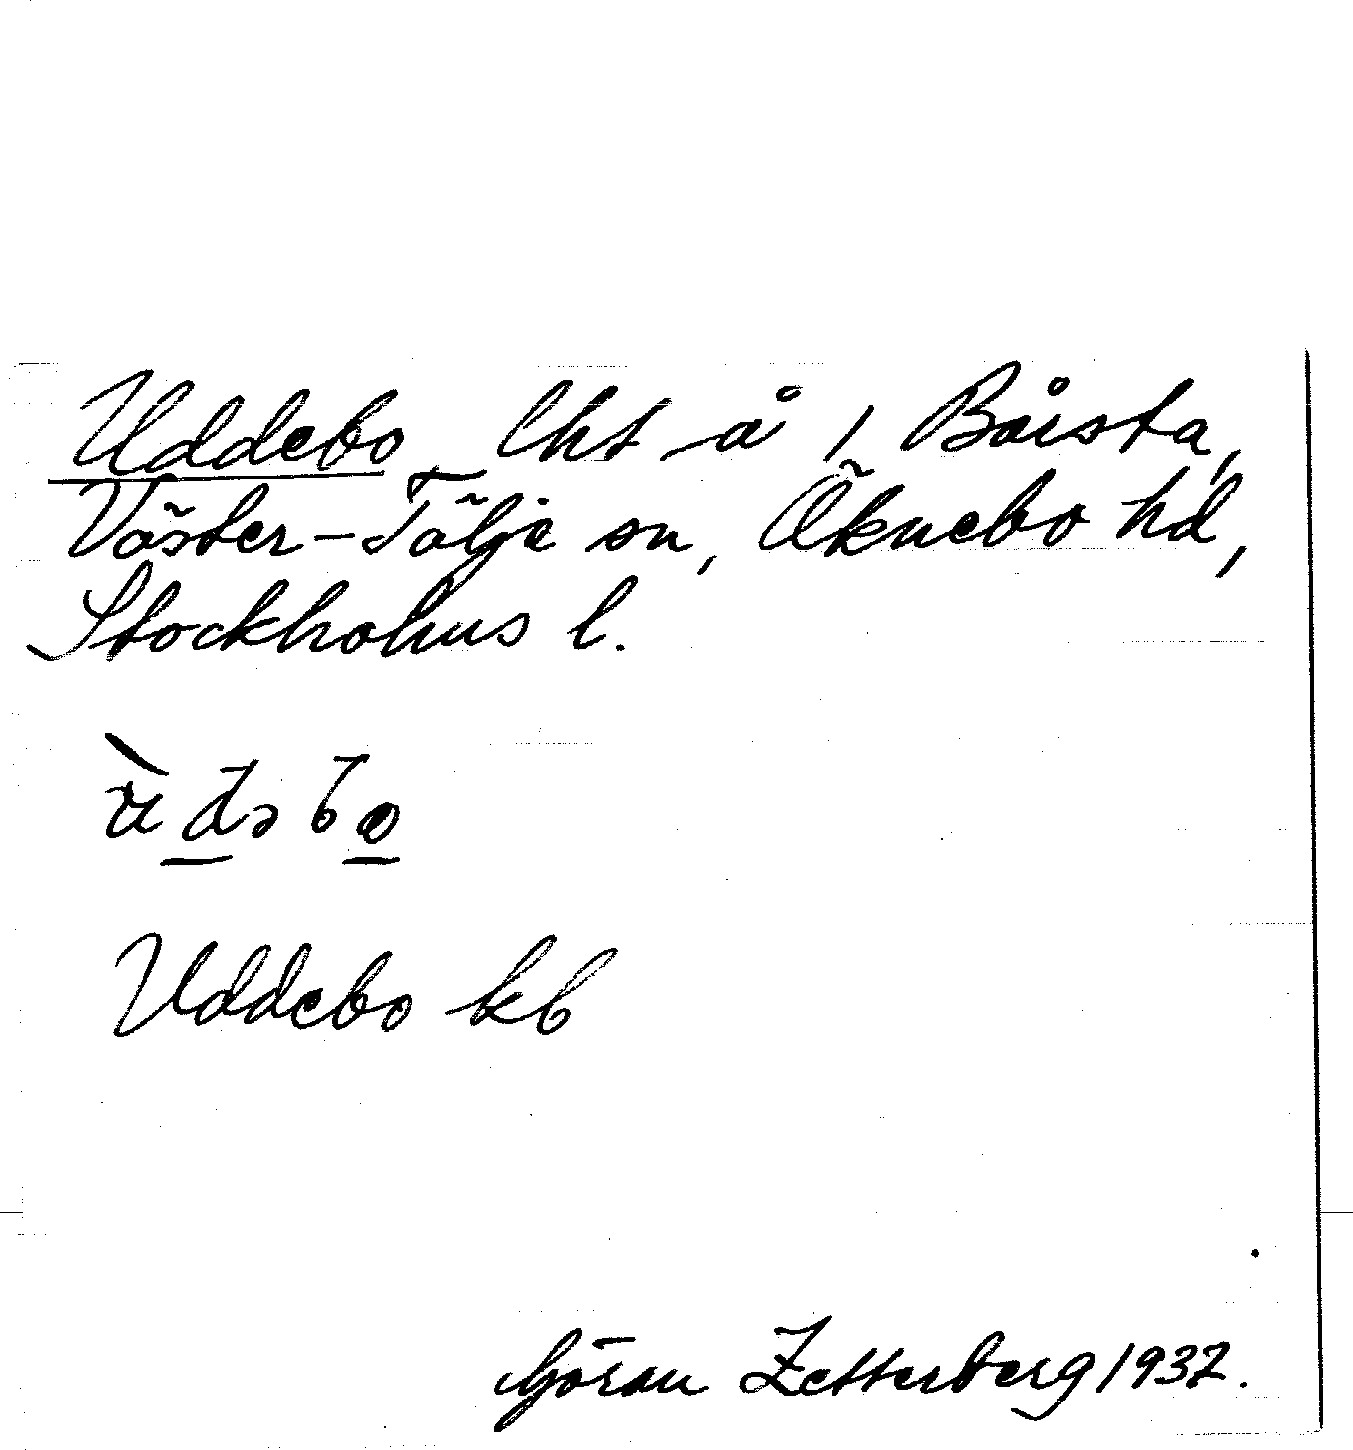 Uddebo, lht å 1 Bårsta,
Väster-Tälje sn, Öknebo hd,
Stockholms l.
ùdəbo
Uddebo kb
Göran Zetterberg 1937.